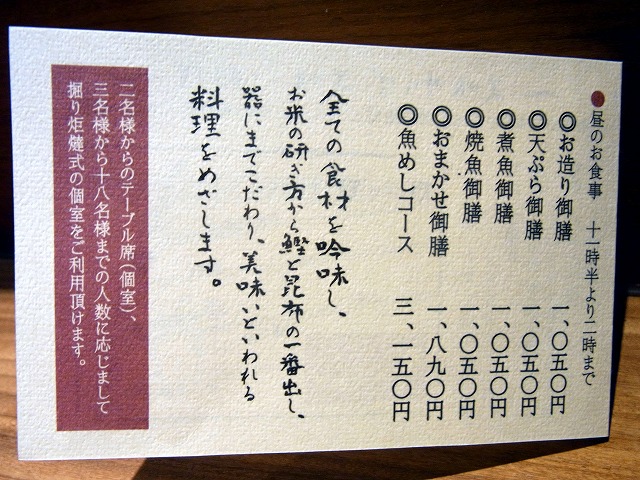 ●昼のお食事 十一時半より二時まで
◎お造り御膳 一、〇五〇円
◎天ぷら御膳 一、〇五〇円
◎煮魚御膳 一、〇五〇円
◎焼魚御膳 一、〇五〇円
◎おまかせ御膳 一、八九〇円
◎魚めしコース 三、一五〇円
全ての食材を吟味し、
お米の研ぎ方から鰹と昆布の一番出し、
器にまでこだわり、美味いといわれる
料理をめざします。
二名様からのテーブル席(個室)、
三名様から十八名様までの人数に応じまして
掘り炬燵式の個室をご利用頂けます。